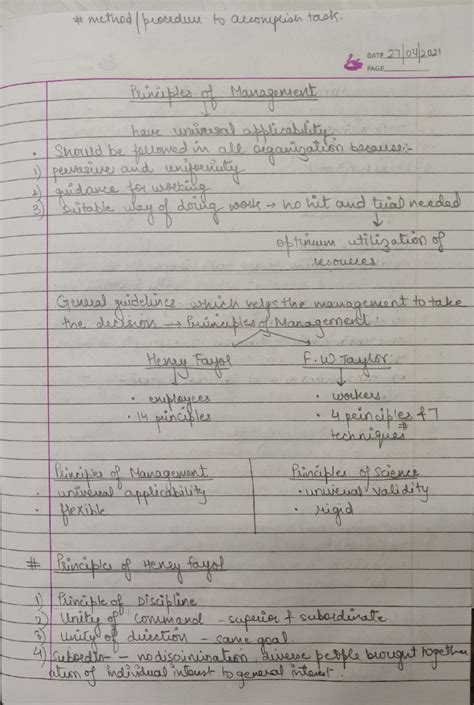 # method/procedure to accomplish task.
DATE 27/04/2021
PAGE
Principles of Management
have universal applicability
• Should be followed in all organization because:-
1) pervasive and uniformity
2) guidance for working
3) suitable way of doing work → no hit and trial needed
optimum utilization of
resources
General guideline which helps the management to take
the decision → Principles of Management.
Henry Fayol F.W. Taylor
• employees • workers.
• 14 principles • 4 principles & 7
techniques #
Principles of Management Principles of Science
• universal applicability • universal validity
• flexible • rigid
# Principles of Henry Fayol
1) Principle of Discipline
2) Unity of command - superior & subordinate
3) Unity of direction - same goal.
4) Subordin- - no discrimination, diverse people brought together
ation of individual interest to general interest.